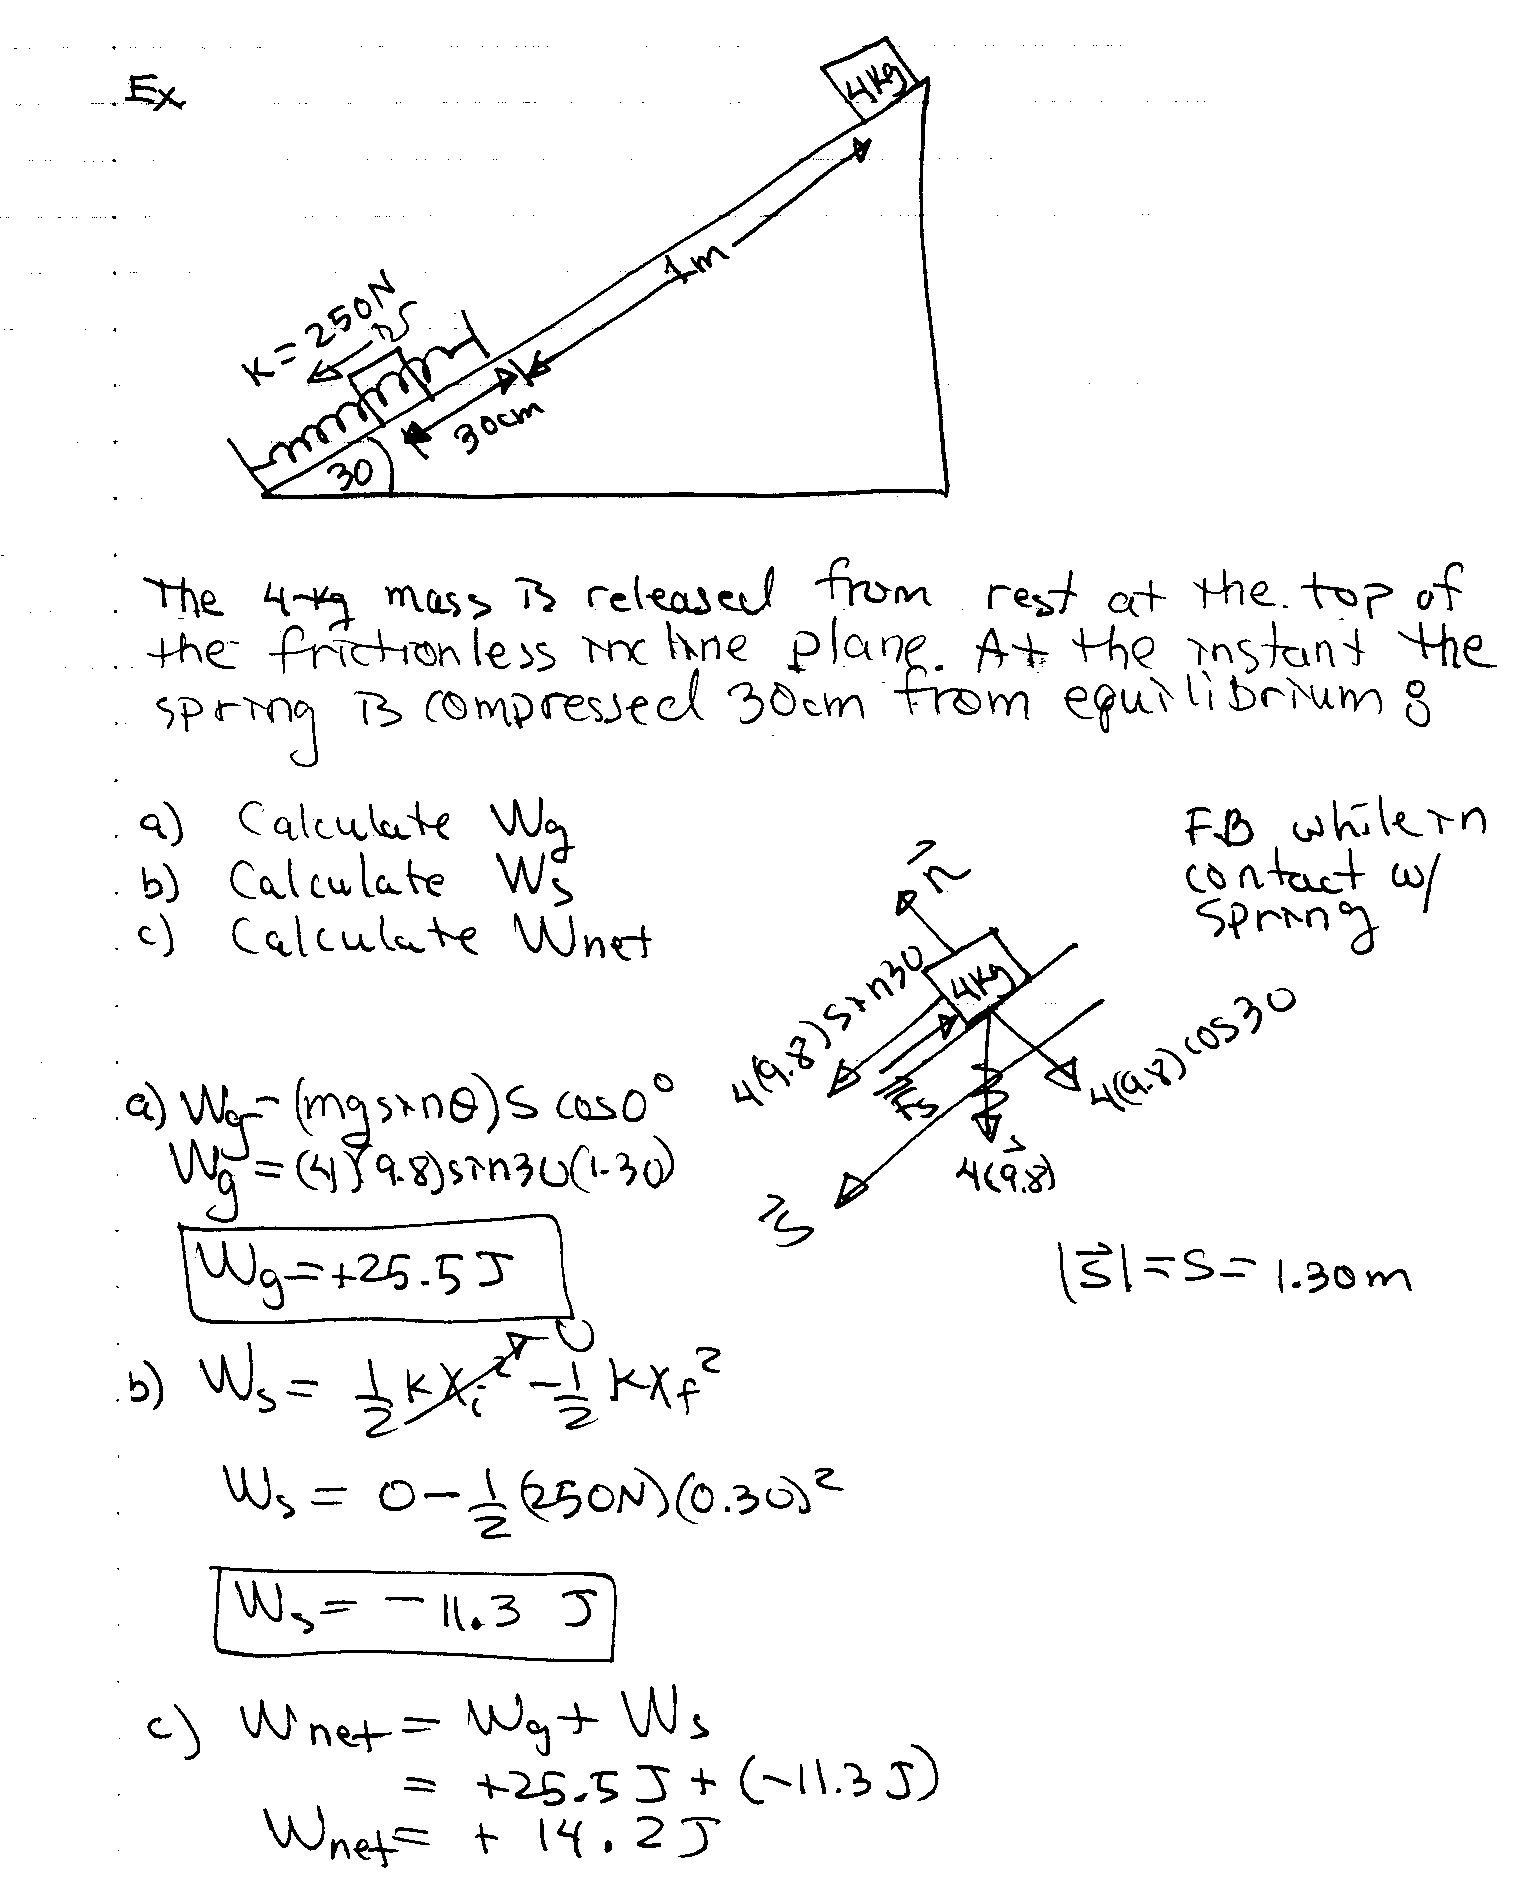 Ex
4kg
1m
K = 250N
v
30cm
30
The 4-kg mass is released from rest at the top of
the frictionless incline plane. At the instant the
spring is compressed 30cm from equilibrium :
a) Calculate Wg
b) Calculate Ws
c) Calculate Wnet
FB while in
contact w/
spring
n
4kg
4(9.8)sin30
Fs
4(9.8)cos30
4(9.8)
S
|S| = S = 1.30m
a) Wg = (mgsinθ)S cos0°
Wg = (4)(9.8)sin30(1.30)
Wg = +25.5J
b) Ws = 1/2 kxi² - 1/2 kxf²
0
Ws = 0 - 1/2 (250N)(0.30)²
Ws = -11.3 J
c) Wnet = Wg + Ws
= +25.5J + (-11.3J)
Wnet = + 14.2J